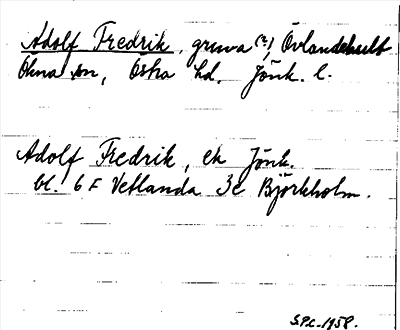 Adolf Fredrik, gruva (?), Övlandehult
Ökna sn, Östra hd. Jönk. l.
Adolf Fredrik, ek Jönk.
bl. 6 F Vetlanda 3c Björkholm.
S.P.C. 1958.